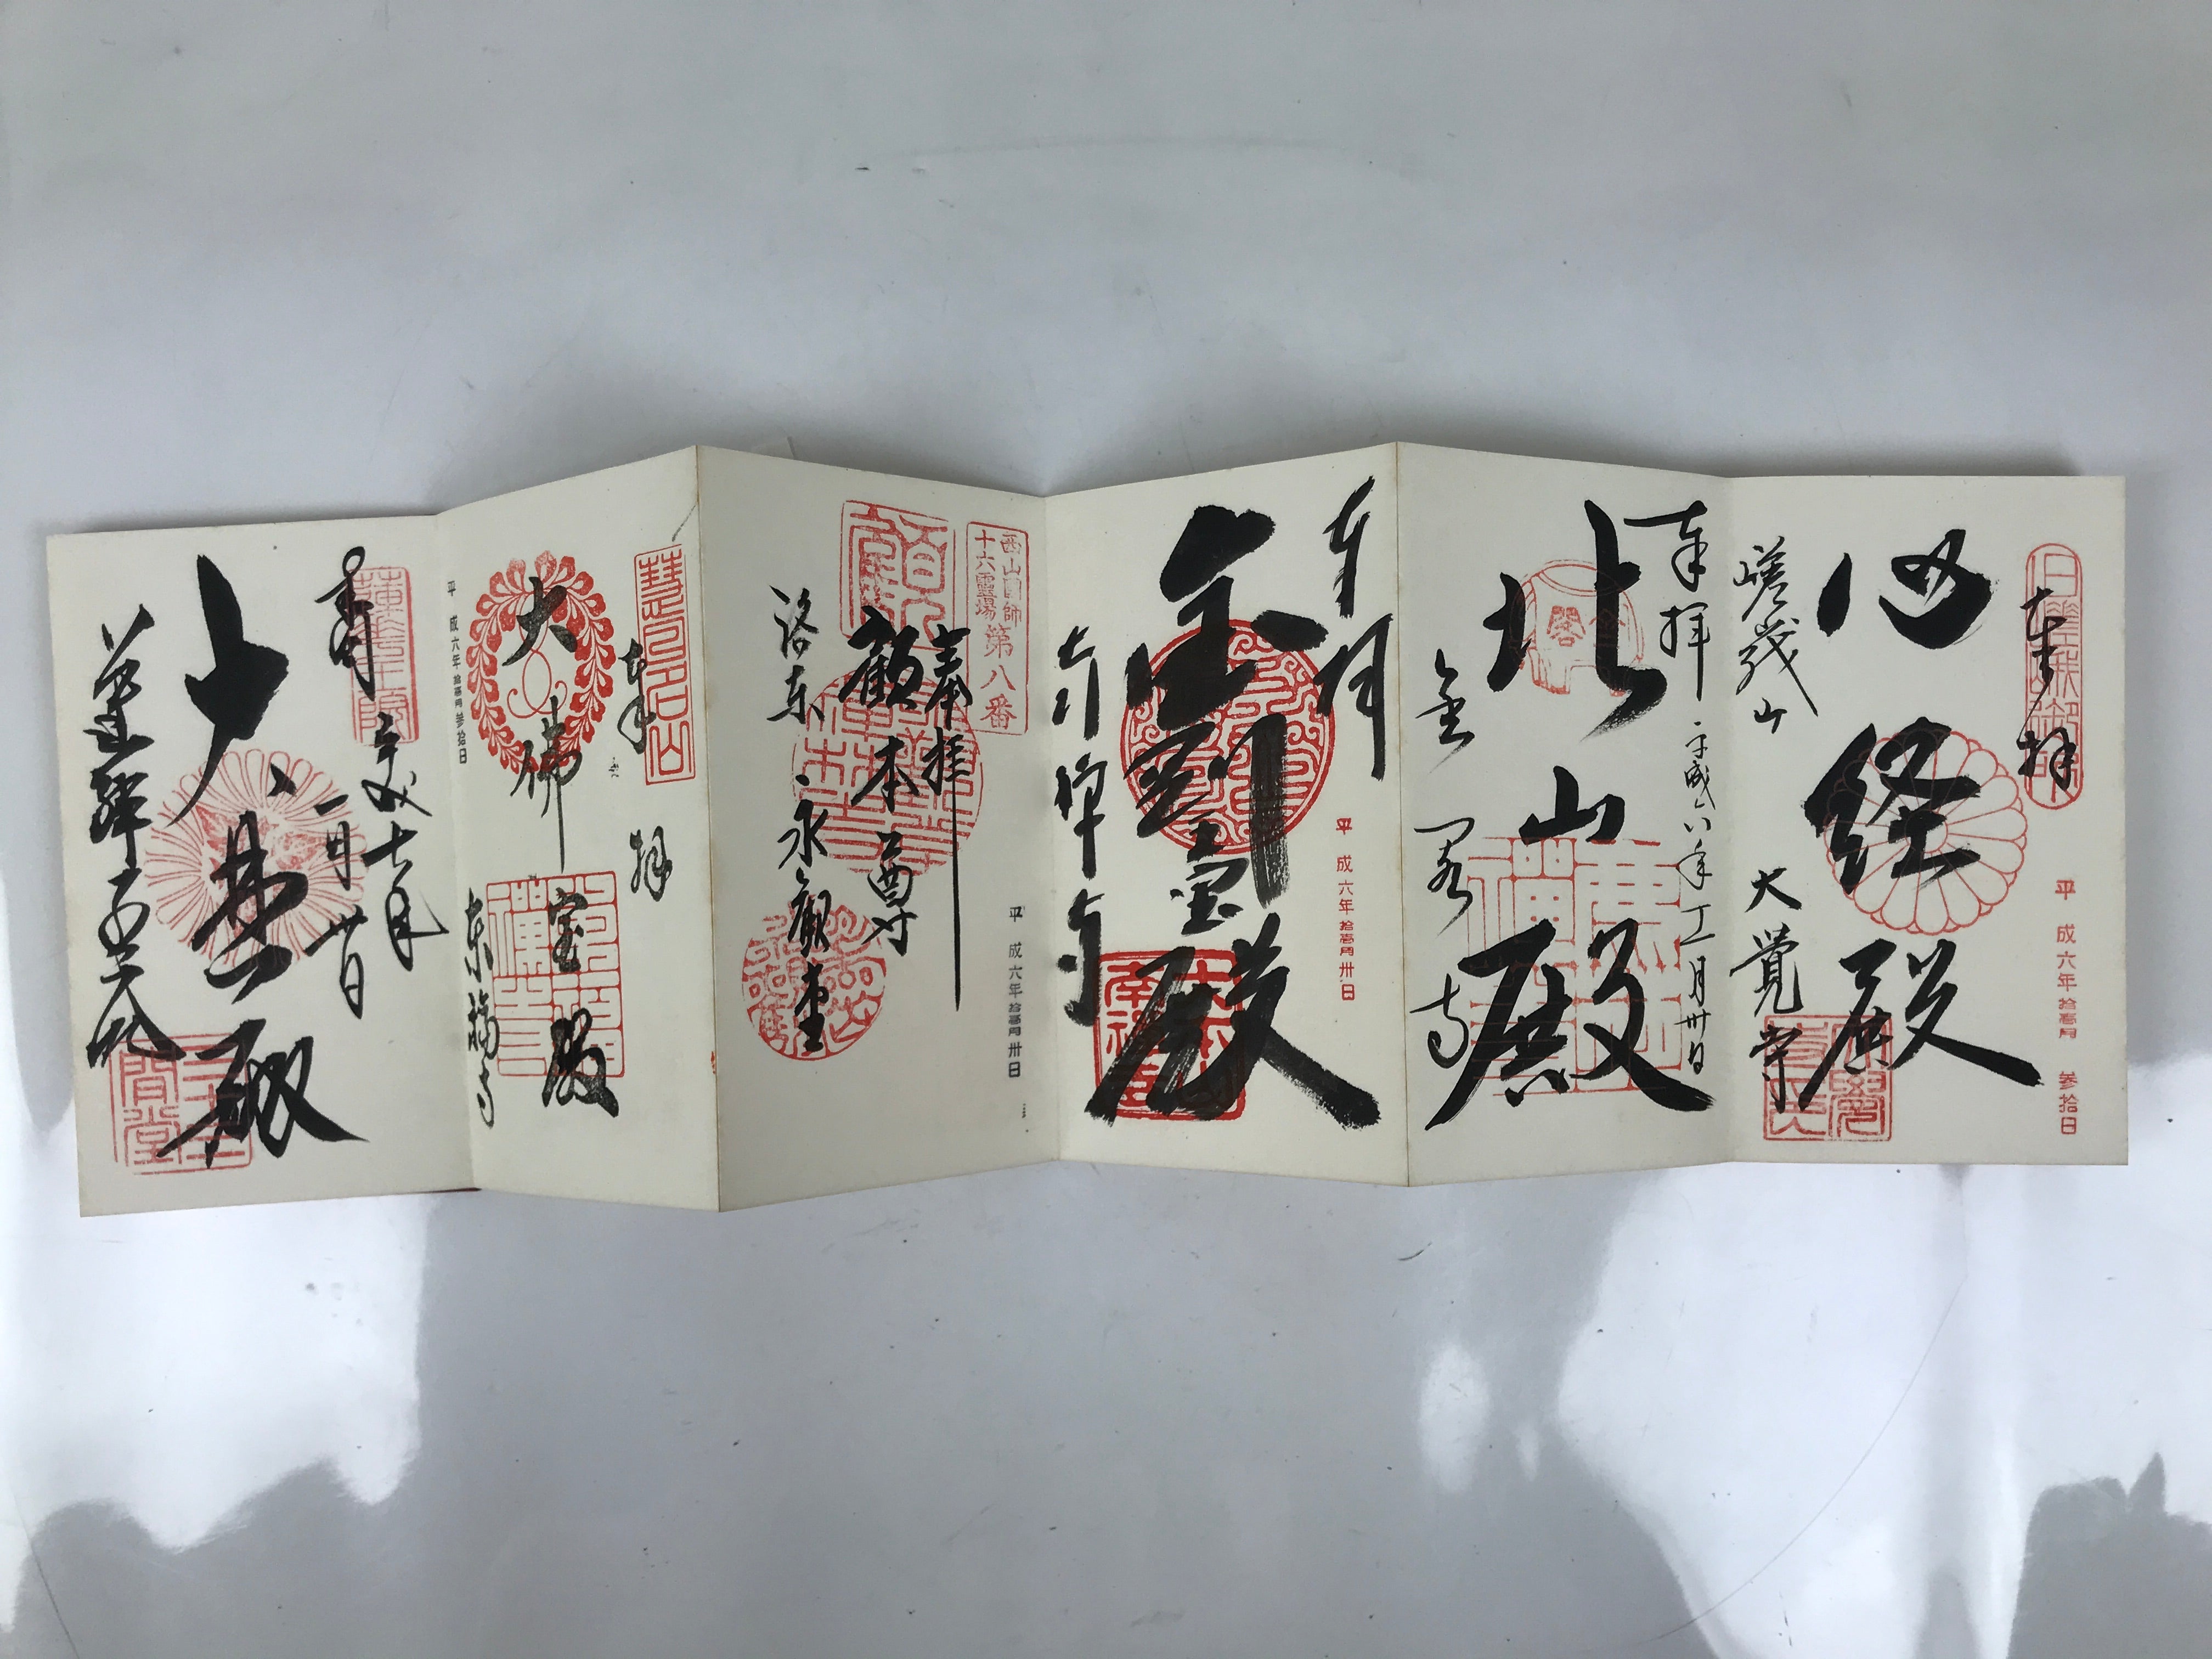 奉拝
心経殿
嵯峨山 大覚寺
平成六年拾壱月 参拾日
奉拝
平成六年十一月卅日
北山殿
金閣寺
奉拝
金剛宝殿
南禅寺
平成六年拾壱月卅日
西山国師
十六霊場
第八番
奉拝
顧本尊
洛東 永観堂
平成六年拾壱月卅日
奉拝
大佛宝殿
東福寺
平成六年拾壱月参拾日
大悲殿
蓮華王院
三十三間堂